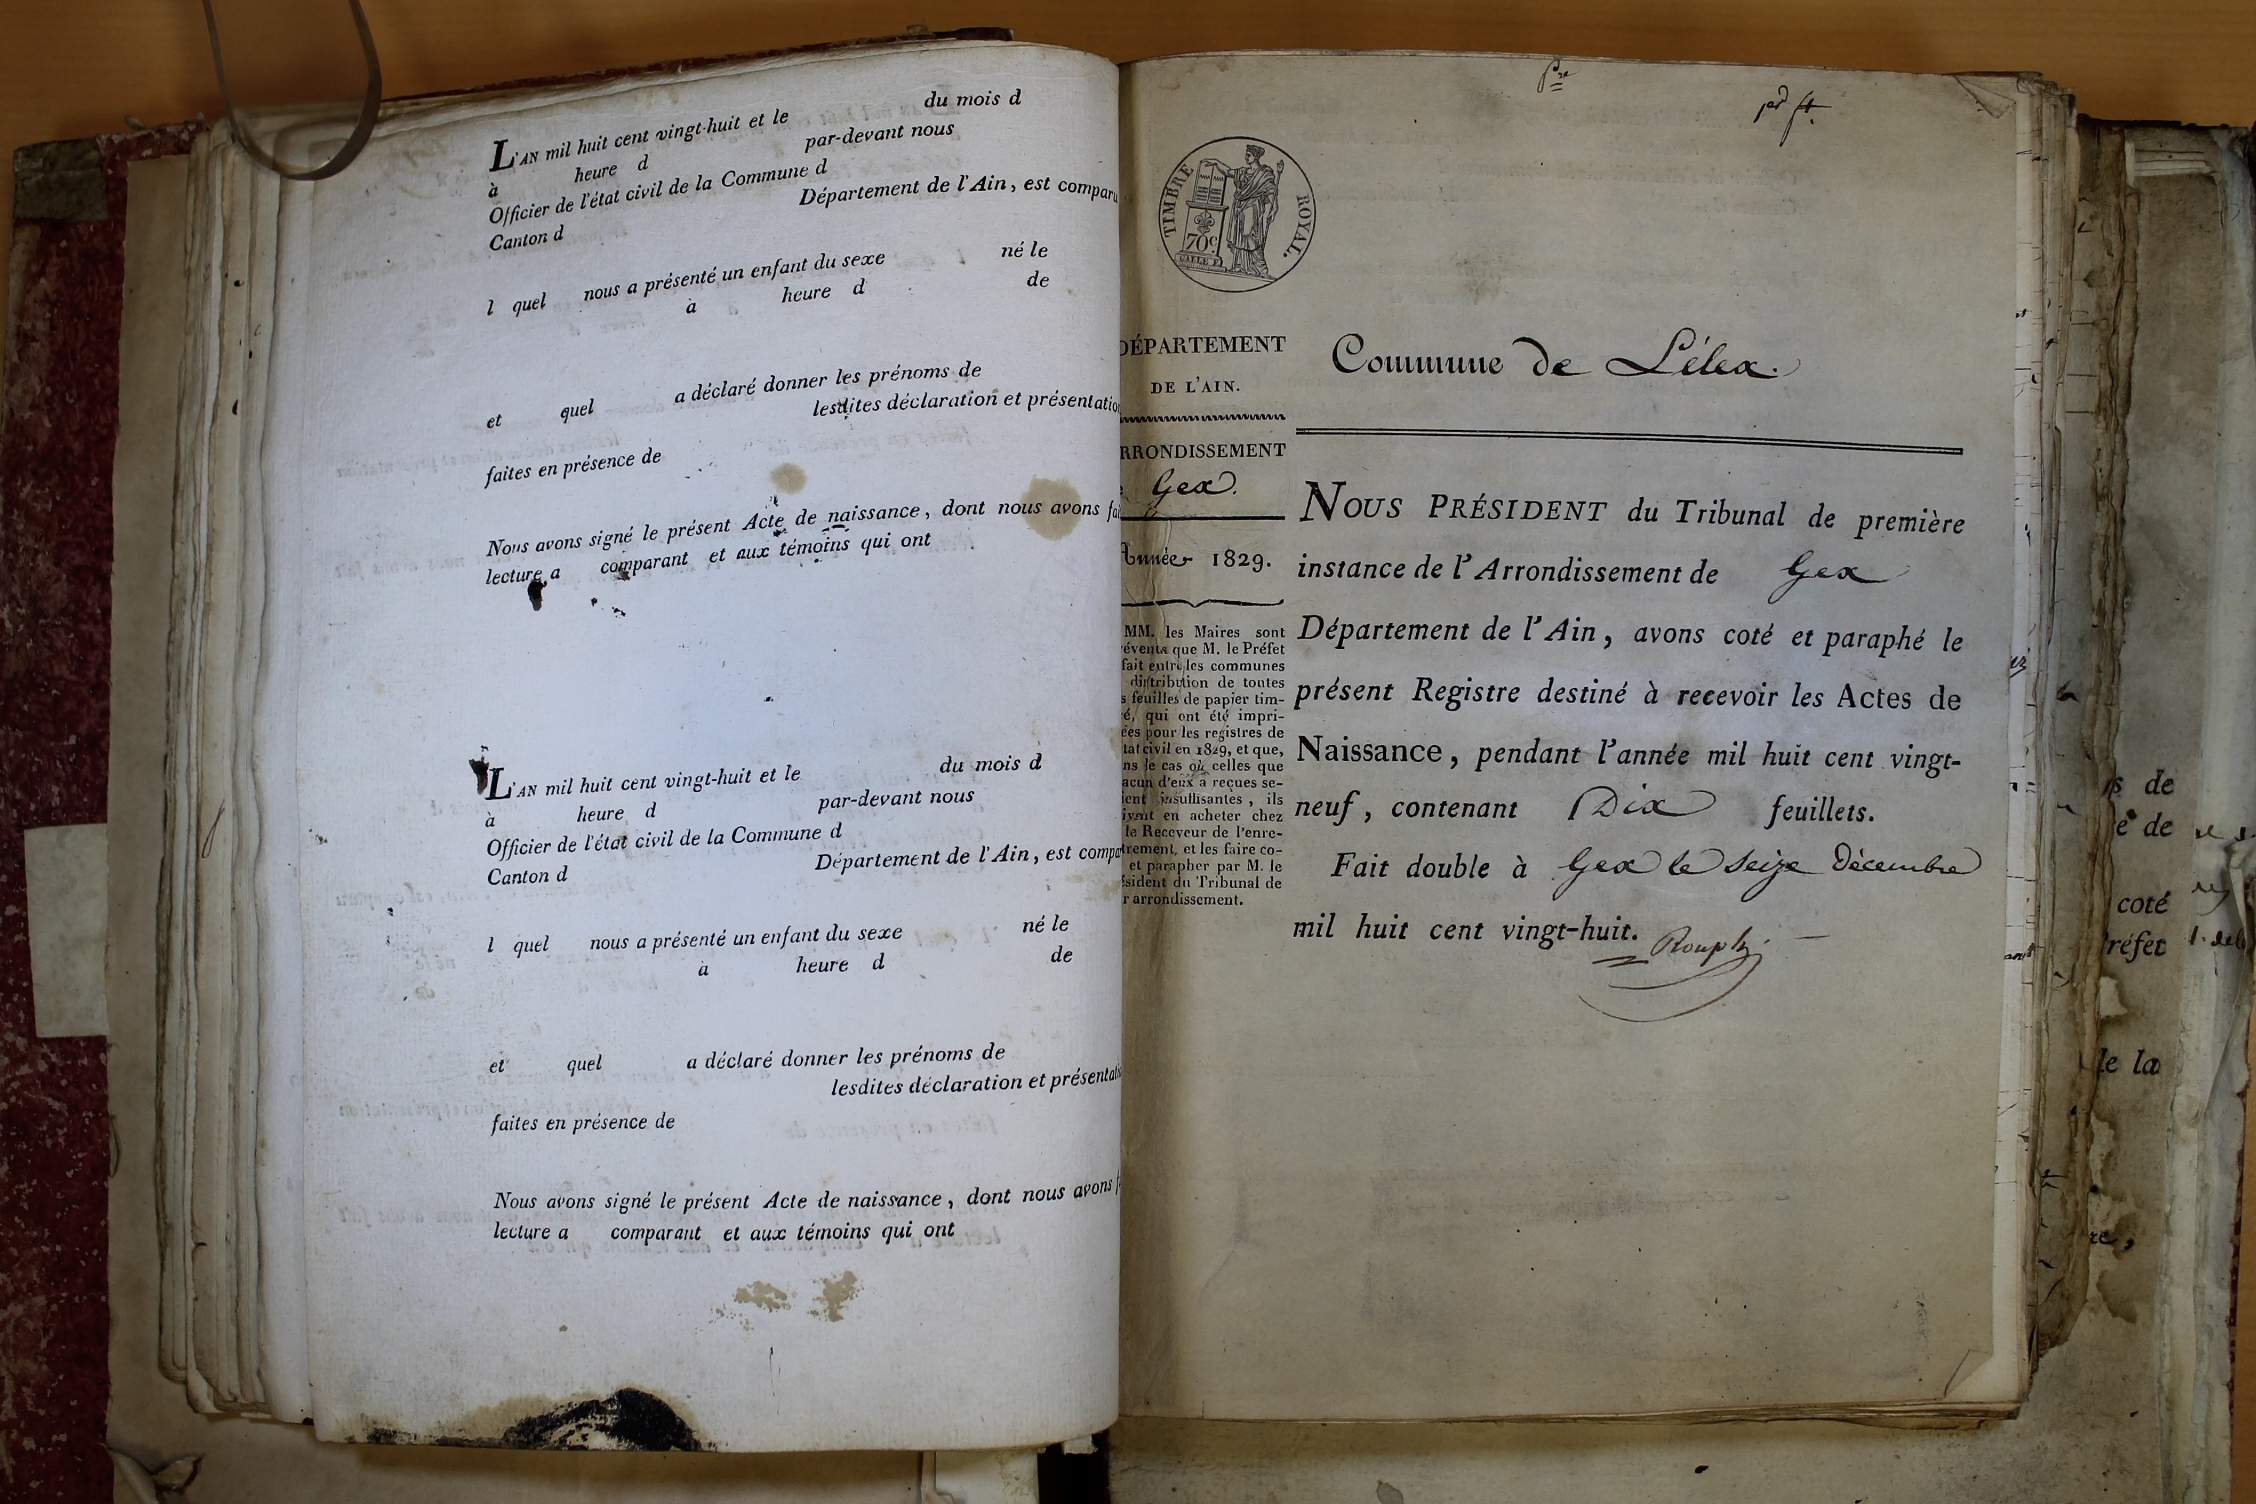 L'AN mil huit cent vingt-huit et le du mois d
à heure d par-devant nous
Officier de l'état civil de la Commune d
Canton d Département de l'Ain, est comparu
l quel nous a présenté un enfant du sexe né le
à heure d de
et quel a déclaré donner les prénoms de
lesdites déclaration et présentation
faites en présence de
Nous avons signé le présent Acte de naissance, dont nous avons fai
lecture a comparant et aux témoins qui ont
L'AN mil huit cent vingt-huit et le du mois d
à heure d par-devant nous
Officier de l'état civil de la Commune d
Canton d Département de l'Ain, est compa
l quel nous a présenté un enfant du sexe né le
à heure d de
et quel a déclaré donner les prénoms de
lesdites déclaration et présentati
faites en présence de
Nous avons signé le présent Acte de naissance, dont nous avons f
lecture a comparant et aux témoins qui ont
TIMBRE ROYAL.
70c.
DÉPARTEMENT
DE L'AIN.
RRONDISSEMENT
Gex.
Année 1829.
MM. les Maires sont
évents que M. le Préfet
fait entre les communes
distribution de toutes
s feuilles de papier tim-
é, qui ont été impri-
ées pour les registres de
tat civil en 1829, et que,
ns le cas où celles que
acun d'eux a reçues se-
ient insuffisantes, ils
ivent en acheter chez
le Receveur de l'enre-
trement, et les faire co-
et parapher par M. le
ésident du Tribunal de
r arrondissement.
Commune de Lélex.
NOUS PRÉSIDENT du Tribunal de première
instance de l'Arrondissement de Gex
Département de l'Ain, avons coté et paraphé le
présent Registre destiné à recevoir les Actes de
Naissance, pendant l'année mil huit cent vingt-
neuf, contenant Dix feuillets.
Fait double à Gex le Seize Décembre
mil huit cent vingt-huit.
s de
é de
coté
réfet
le la
re,